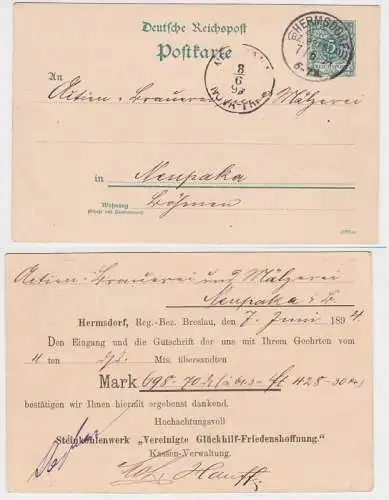 Deutsche Reichspost
Postkarte
HERMSDORF
An
8
6
Actien-Brauerei & Mälzerei
in Neupaka
Wohnung
Böhmen
(Straße und Hausnummer)
Actien-Brauerei und Mälzerei
Neupaka i. B.
Hermsdorf, Reg.-Bez. Breslau, den 7. Juni 189
Den Eingang und die Gutschrift der uns mit Ihrem Geehrten vom
ten Mts. übersandten
Mark 698-70
bestätigen wir Ihnen hiermit ergebenst dankend.
Hochachtungsvoll
Steinkohlenwerk „Vereinigte Glückhilf-Friedenshoffnung."
Kassen-Verwaltung.